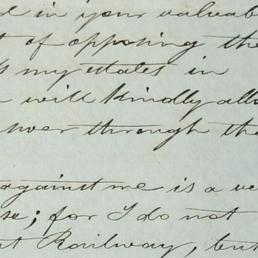 in your valuab
t of opposing the
my estates in
will kindly allo
over through the
against me is a ve
se; for I do not
t Railway, but